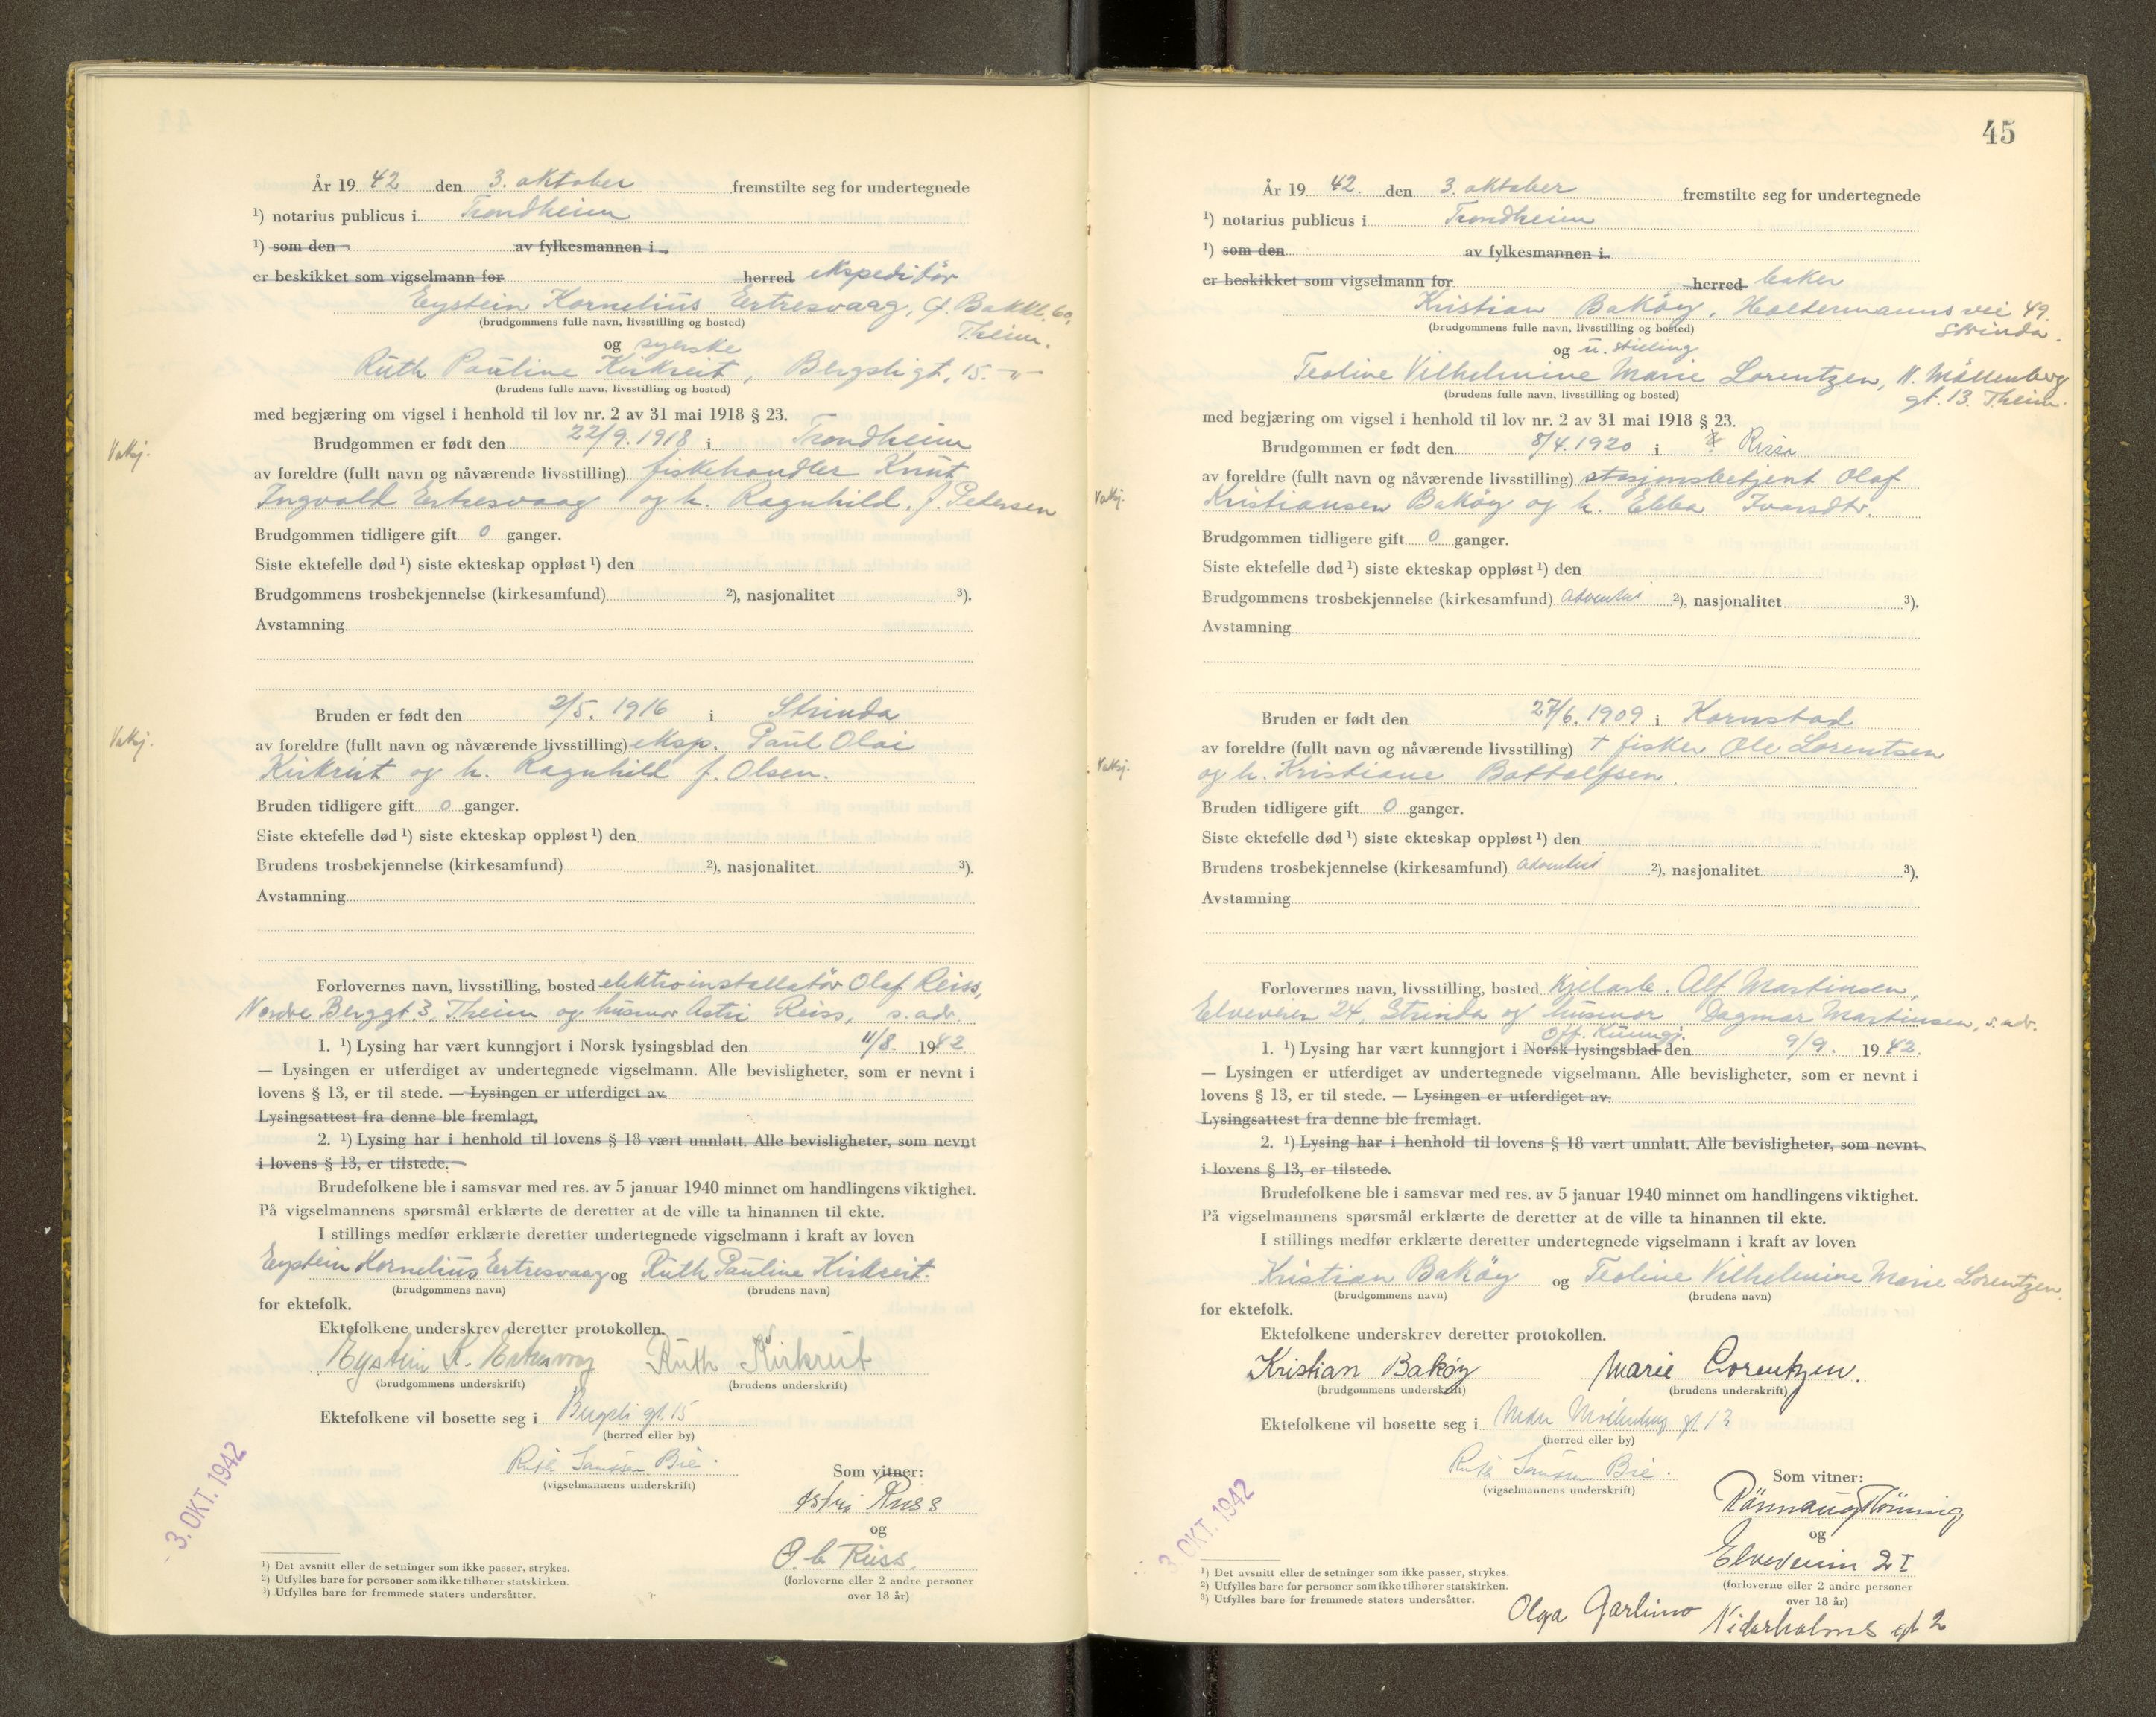 År 1942 den 3. oktober fremstilte seg for undertegnede
¹) notarius publicus i Trondheim
¹) som den av fylkesmannen i
er beskikket som vigselmann for herred ekspeditør
Eystein Kornelius Ertresvaag, Ø. Bakkl. 60,
Theim.
(brudgommens fulle navn, livsstilling og bosted)
og syerske
Ruth Pauline Kirkreit, Bergsligt. 15. -"-
(brudens fulle navn, livsstilling og bosted)
med begjæring om vigsel i henhold til lov nr. 2 av 31 mai 1918 § 23.
Vakj. Brudgommen er født den 22/9. 1918 i Trondheim
av foreldre (fullt navn og nåværende livsstilling) fiskehandler Knut
Ingvald Ertresvaag og h. Ragnhild f. Pedersen
Brudgommen tidligere gift 0 ganger.
Siste ektefelle død ¹) siste ekteskap oppløst ¹) den
Brudgommens trosbekjennelse (kirkesamfund) ²), nasjonalitet ³).
Avstamning
Vakj. Bruden er født den 2/5. 1916 i Strinda
av foreldre (fullt navn og nåværende livsstilling) eksp. Paul Olai
Kirkreit og h. Ragnhild f. Olsen.
Bruden tidligere gift 0 ganger.
Siste ektefelle død ¹) siste ekteskap oppløst ¹) den
Brudens trosbekjennelse (kirkesamfund) ²), nasjonalitet ³).
Avstamning
Forlovernes navn, livsstilling, bosted elektroinstallatør Olaf Reiss,
Nordre Berggt. 3, Theim og husmor Astri Reiss, s. adr.
1. ¹) Lysing har vært kunngjort i Norsk lysingsblad den 11/8. 1942.
— Lysingen er utferdiget av undertegnede vigselmann. Alle bevisligheter, som er nevnt i
lovens § 13, er til stede. — Lysingen er utferdiget av
Lysingsattest fra denne ble fremlagt.
2. ¹) Lysing har i henhold til lovens § 18 vært unnlatt. Alle bevisligheter, som nevnt
i lovens § 13, er tilstede.
Brudefolkene ble i samsvar med res. av 5 januar 1940 minnet om handlingens viktighet.
På vigselmannens spørsmål erklærte de deretter at de ville ta hinannen til ekte.
I stillings medfør erklærte deretter undertegnede vigselmann i kraft av loven
Eystein Kornelius Ertresvaag og Ruth Pauline Kirkreit.
(brudgommens navn) (brudens navn)
for ektefolk.
Ektefolkene underskrev deretter protokollen.
Eystein K. Ertresvaag Ruth Kirkreit
(brudgommens underskrift) (brudens underskrift)
Ektefolkene vil bosette seg i Bergsli gt. 15
(herred eller by)
Ruth Bie.
(vigselmannens underskrift)
Som vitner:
Astri Reiss
og
O. Reiss.
(forloverne eller 2 andre personer
over 18 år)
- 3. OKT. 1942
¹) Det avsnitt eller de setninger som ikke passer, strykes.
²) Utfylles bare for personer som ikke tilhører statskirken.
³) Utfylles bare for fremmede staters undersåtter.
45
År 1942. den 3. oktober fremstilte seg for undertegnede
¹) notarius publicus i Trondheim
¹) som den av fylkesmannen i
er beskikket som vigselmann for herred baker
Kristian Bakøy, Holtermanns vei 49.
Strinda.
(brudgommens fulle navn, livsstilling og bosted)
og u. stilling
Teoline Vilhelmine Marie Lorentzen, N. Møllenberg
gt. 13. Theim.
(brudens fulle navn, livsstilling og bosted)
med begjæring om vigsel i henhold til lov nr. 2 av 31 mai 1918 § 23.
Brudgommen er født den 8/4. 1920 i Rissa
av foreldre (fullt navn og nåværende livsstilling) stasjonsbetjent Olaf
Vakj. Kristiansen Bakøy og h. Ebba Ivarsdtr.
Brudgommen tidligere gift 0 ganger.
Siste ektefelle død ¹) siste ekteskap oppløst ¹) den
Brudgommens trosbekjennelse (kirkesamfund) Adventist ²), nasjonalitet ³).
Avstamning
Bruden er født den 27/6. 1909 i Kornstad
av foreldre (fullt navn og nåværende livsstilling) † fisker Ole Lorentsen
Vakj. og h. Kristiane Bottolfsen.
Bruden tidligere gift 0 ganger.
Siste ektefelle død ¹) siste ekteskap oppløst ¹) den
Brudens trosbekjennelse (kirkesamfund) Adventist ²), nasjonalitet ³).
Avstamning
Forlovernes navn, livsstilling, bosted Kjelarb. Alf Martinsen,
Elveveien 24, Strinda og husmor Dagmar Martinsen, s. adr.
Off. Kunngj.
1. ¹) Lysing har vært kunngjort i Norsk lysingsblad den 9/9. 1942.
— Lysingen er utferdiget av undertegnede vigselmann. Alle bevisligheter, som er nevnt i
lovens § 13, er til stede. — Lysingen er utferdiget av
Lysingsattest fra denne ble fremlagt.
2. ¹) Lysing har i henhold til lovens § 18 vært unnlatt. Alle bevisligheter, som nevnt
i lovens § 13, er tilstede.
Brudefolkene ble i samsvar med res. av 5 januar 1940 minnet om handlingens viktighet.
På vigselmannens spørsmål erklærte de deretter at de ville ta hinannen til ekte.
I stillings medfør erklærte deretter undertegnede vigselmann i kraft av loven
Kristian Bakøy og Teoline Vilhelmine Marie Lorentzen.
(brudgommens navn) (brudens navn)
for ektefolk.
Ektefolkene underskrev deretter protokollen.
Kristian Bakøy Marie Lorentzen.
(brudgommens underskrift) (brudens underskrift)
Ektefolkene vil bosette seg i Nedre Møllenberg gt. 13
(herred eller by)
Ruth Bie.
(vigselmannens underskrift)
Som vitner:
Rønnaug Flønnig
og
Elveveien 21
(forloverne eller 2 andre personer
over 18 år)
Olga Garlimo Niderholms gt 2
3. OKT. 1942
¹) Det avsnitt eller de setninger som ikke passer, strykes.
²) Utfylles bare for personer som ikke tilhører statskirken.
³) Utfylles bare for fremmede staters undersåtter.